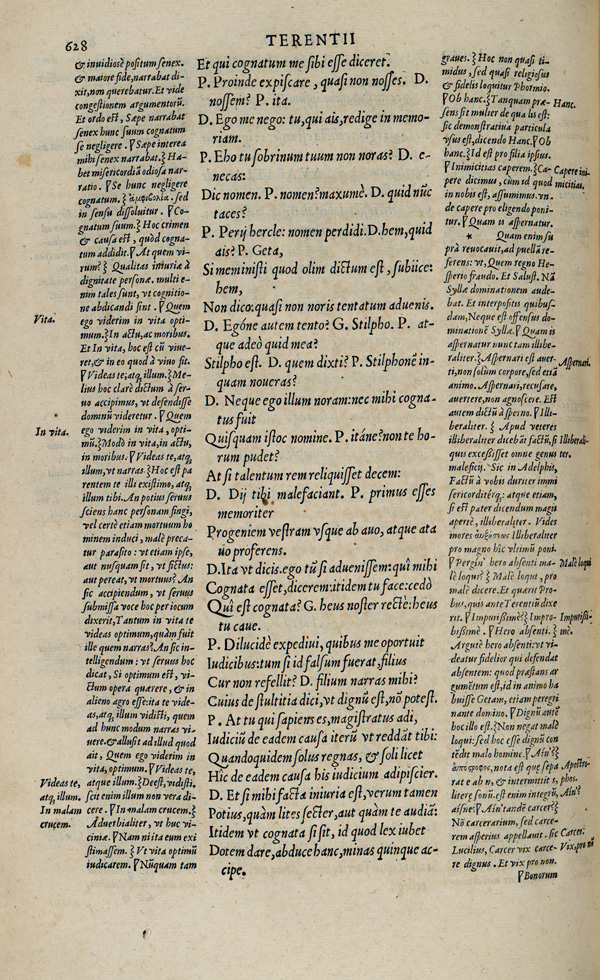 628
TERENTII
& inuidiosè positum senex.
& maiore fide, narrabat di-
xit, non querebatur. Et vide
congestionem argumentorũ.
Et ordo est, Sæpe narrabat
senex hunc suum cognatum
se negligere. ⁋Sæpe interea
mihi senex narrabat.⁆ Ha-
bet misericordiã odiosa nar-
ratio. ⁋Se hunc negligere
cognatum.⁆ ἀμφιβολία. sed
in sensu dissoluitur. ⁋Co-
gnatum suum.⁆ Hoc crimen
& causa est, quòd cogna-
tum addidit. ⁋At quem vi-
rum?⁆ Qualitas iniuriæ à
dignitate personæ. multi e-
nim tales sunt, vt cognitio-
ne abdicandi sint. ⁋Quem
ego viderim in vita opti-
mum.⁆ In actu, ac moribus.
Et In vita, hoc est cũ viue-
ret, & in eo quod à viuo sit.
⁋Videas te, atq, illum.⁆ Me-
lius hoc clarè dictum à ser-
uo accipimus, vt defendisse
dominũ videretur. ⁋Quem
ego viderim in vita, opti-
mũ.⁆ Modò in vita, in actu,
in moribus. ⁋Videas te, atq,
illum, vt narras.⁆ Hoc est pa
rentem te illi existimo, atq,
illum tibi. An potius seruus
sciens hanc personam fingi,
vel certè etiam mortuum ho
minem induci, malè preca-
tur parasito: vt etiam ipse,
aut nusquam sit, vt fictus:
aut pereat, vt mortuus? An
sic accipiendum, vt seruus
submissa voce hoc per iocum
dixerit, Tantum in vita te
videas optimum, quàm fuit
ille quem narras?. An sic in-
telligendum: vt seruus hoc
dicat, Si optimum est, vi-
ctum opera quærere, & in
alieno agro esse: ita te vide-
as, atq, illum vidisti, quem
ad hunc modum narras vi-
uere. & allusit ad illud quod
ait, Quem ego viderim in
vita, optimum. ⁋Videas te,
atque illum.⁆ Deest, vidisti.
scit enim illum non vera di-
cere. ⁋In malam crucem.⁆
Aduerbialiter, vt huc vi-
ciniæ. ⁋Nam ni ita eum exi
stimassem.⁆ Vt vita optimũ
iudicarem. ⁋Nũquam tam
Vita.
In vita.
Videas te,
atq, illum.
In malam
crucem.
Et qui cognatum me sibi esse diceret.
P. Proinde expiscare, quasi non nosses. D.
nossem? P. ita.
D. Ego me nego: tu, qui ais, redige in memo-
riam.
P. Eho tu sobrinum tuum non noras? D. e-
necas:
Dic nomen. P. nomen? maxumè. D. quid nũc
taces?
P. Perij hercle: nomen perdidi. D. hem, quid
ais? P. Geta,
Si meministi quod olim dictum est, subiice:
hem,
Non dico: quasi non noris tentatum aduenis.
D. Egóne autem tento? G. Stilpho. P. at-
que adeò quid mea?
Stilpho est. D. quem dixti? P. Stilphonē in-
quam noueras?
D. Neque ego illum noram: nec mihi cogna-
tus fuit
Quisquam istoc nomine. P. itáne? non te ho-
rum pudet?
At si talentum rem reliquisset decem:
D. Dij tibi malefaciant. P. primus esses
memoriter
Progeniem vestram vsque ab auo, atque ata
uo proferens.
D. Ita vt dicis. ego tũ si aduenissem: quî mihi
Cognata esset, dicerem: itidem tu face: cedò
Quî est cognata? G. heus noster rectè: heus
tu caue.
P. Dilucidè expediui, quibus me oportuit
Iudicibus: tum si id falsum fuerat, filius
Cur non refellit? D. filium narras mihi?
Cuius de stultitia dici, vt dignũ est, nõ potest.
P. At tu qui sapiens es, magistratus adi,
Iudiciũ de eadem causa iterũ vt reddãt tibi:
Quandoquidem solus regnas, & soli licet
Hîc de eadem causa his iudicium adipiscier.
D. Et si mihi facta iniuria est, verum tamen
Potius, quàm lites secter, aut quàm te audiã:
Itidem vt cognata si sit, id quod lex iubet
Dotem dare, abduce hanc, minas quinque ac-
cipe.
graues.⁆ Hoc non quasi ti-
midus, sed quasi religiosus
& fidelis loquitur Phormio.
⁋Ob hanc.⁆ Tanquam præ-
sens sit mulier de qua lis est:
sic demonstratiua particula
vsus est, dicendo Hanc. ⁋Ob
hanc.⁆ Id est pro filia ipsius.
⁋Inimicitias caperem.⁆ Ca-
pere dicimus, cùm id quod
in nobis est, assumimus. vn-
de capere pro eligendo poni-
tur. ⁋Quam is aspernatur.
* Quam enim su
prà reuocauit, ad puellã re-
ferens: vt, Quem regno He-
sperio fraudo. Et Salust. Nã
Syllæ dominationem aude-
bat. Et interpositis quibus-
dam, Neque est offensus do-
minatione Syllæ. ⁋Quam is
aspernatur nunc tam illibe-
raliter.⁆ Aspernari est auer-
ti, non solùm corpore, sed etiã
animo. Aspernari, recusare,
auertere, non agnoscere. Est
autem dictũ à sperno. ⁋Illi-
beraliter.⁆ Apud veteres
illiberaliter dicebãt factũ, si
quis excessisset omne genus
maleficij. Sic in Adelphis,
Factũ à vobis duriter immi
sericorditérq; atque etiam,
si est pater dicendum magis
apertè, illiberaliter. Vides
mores αὐξήσεως Illiberaliter
pro magno hîc vltimũ poni.
⁋Pergin' hero absenti ma-
lè loqui?⁆ Malè loqui, pro
malè dicere. Et quærit Pro-
bus, quis ante Terentiũ dixe
rit. ⁋Impurißimè?⁆ Impro-
bißimè. ⁋Hero absenti.⁆
Argutè hero absenti: vt vi-
deatur fidelior qui defendat
absentem: quod præstans ar
gumẽtum est, id in animo ha
buisse Getam, etiam peregri
nante domino. ⁋Dignũ autẽ
hoc illo est.⁆ Non negat malè
loqui: sed hoc esse dignũ con
tẽdit malo homine. ⁋Ain'⁆
ἀπόστροφος, nota est quæ sepa
rat e ab n, & intermittit s,
litere sonũ. est enim integrũ,
aisne? ⁋Ain' tandẽ carcer?⁆
Nõ carcerarium, sed carce-
rem asperius appellauit. sic
Lucilius, Carcer vix carce-
re dignus. Et vix pro non.
⁋Bonorum
Hanc.
Capere ini-
micitias.
Aspernari.
Illiberali-
ter.
Malè loqui
Impurißi-
mè.
Apostro-
phos.
Ain'?
Carcer.
Vix, pro nõ